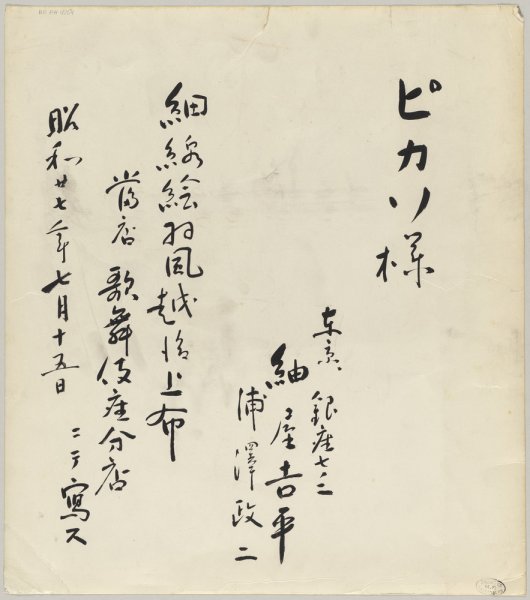 ピカソ様
東京、銀座七ノ二
紬屋吉平
浦澤政二
細線絵羽風越後上布
當店 歌舞伎座分店
ニテ寫ス
昭和廿七年七月十五日